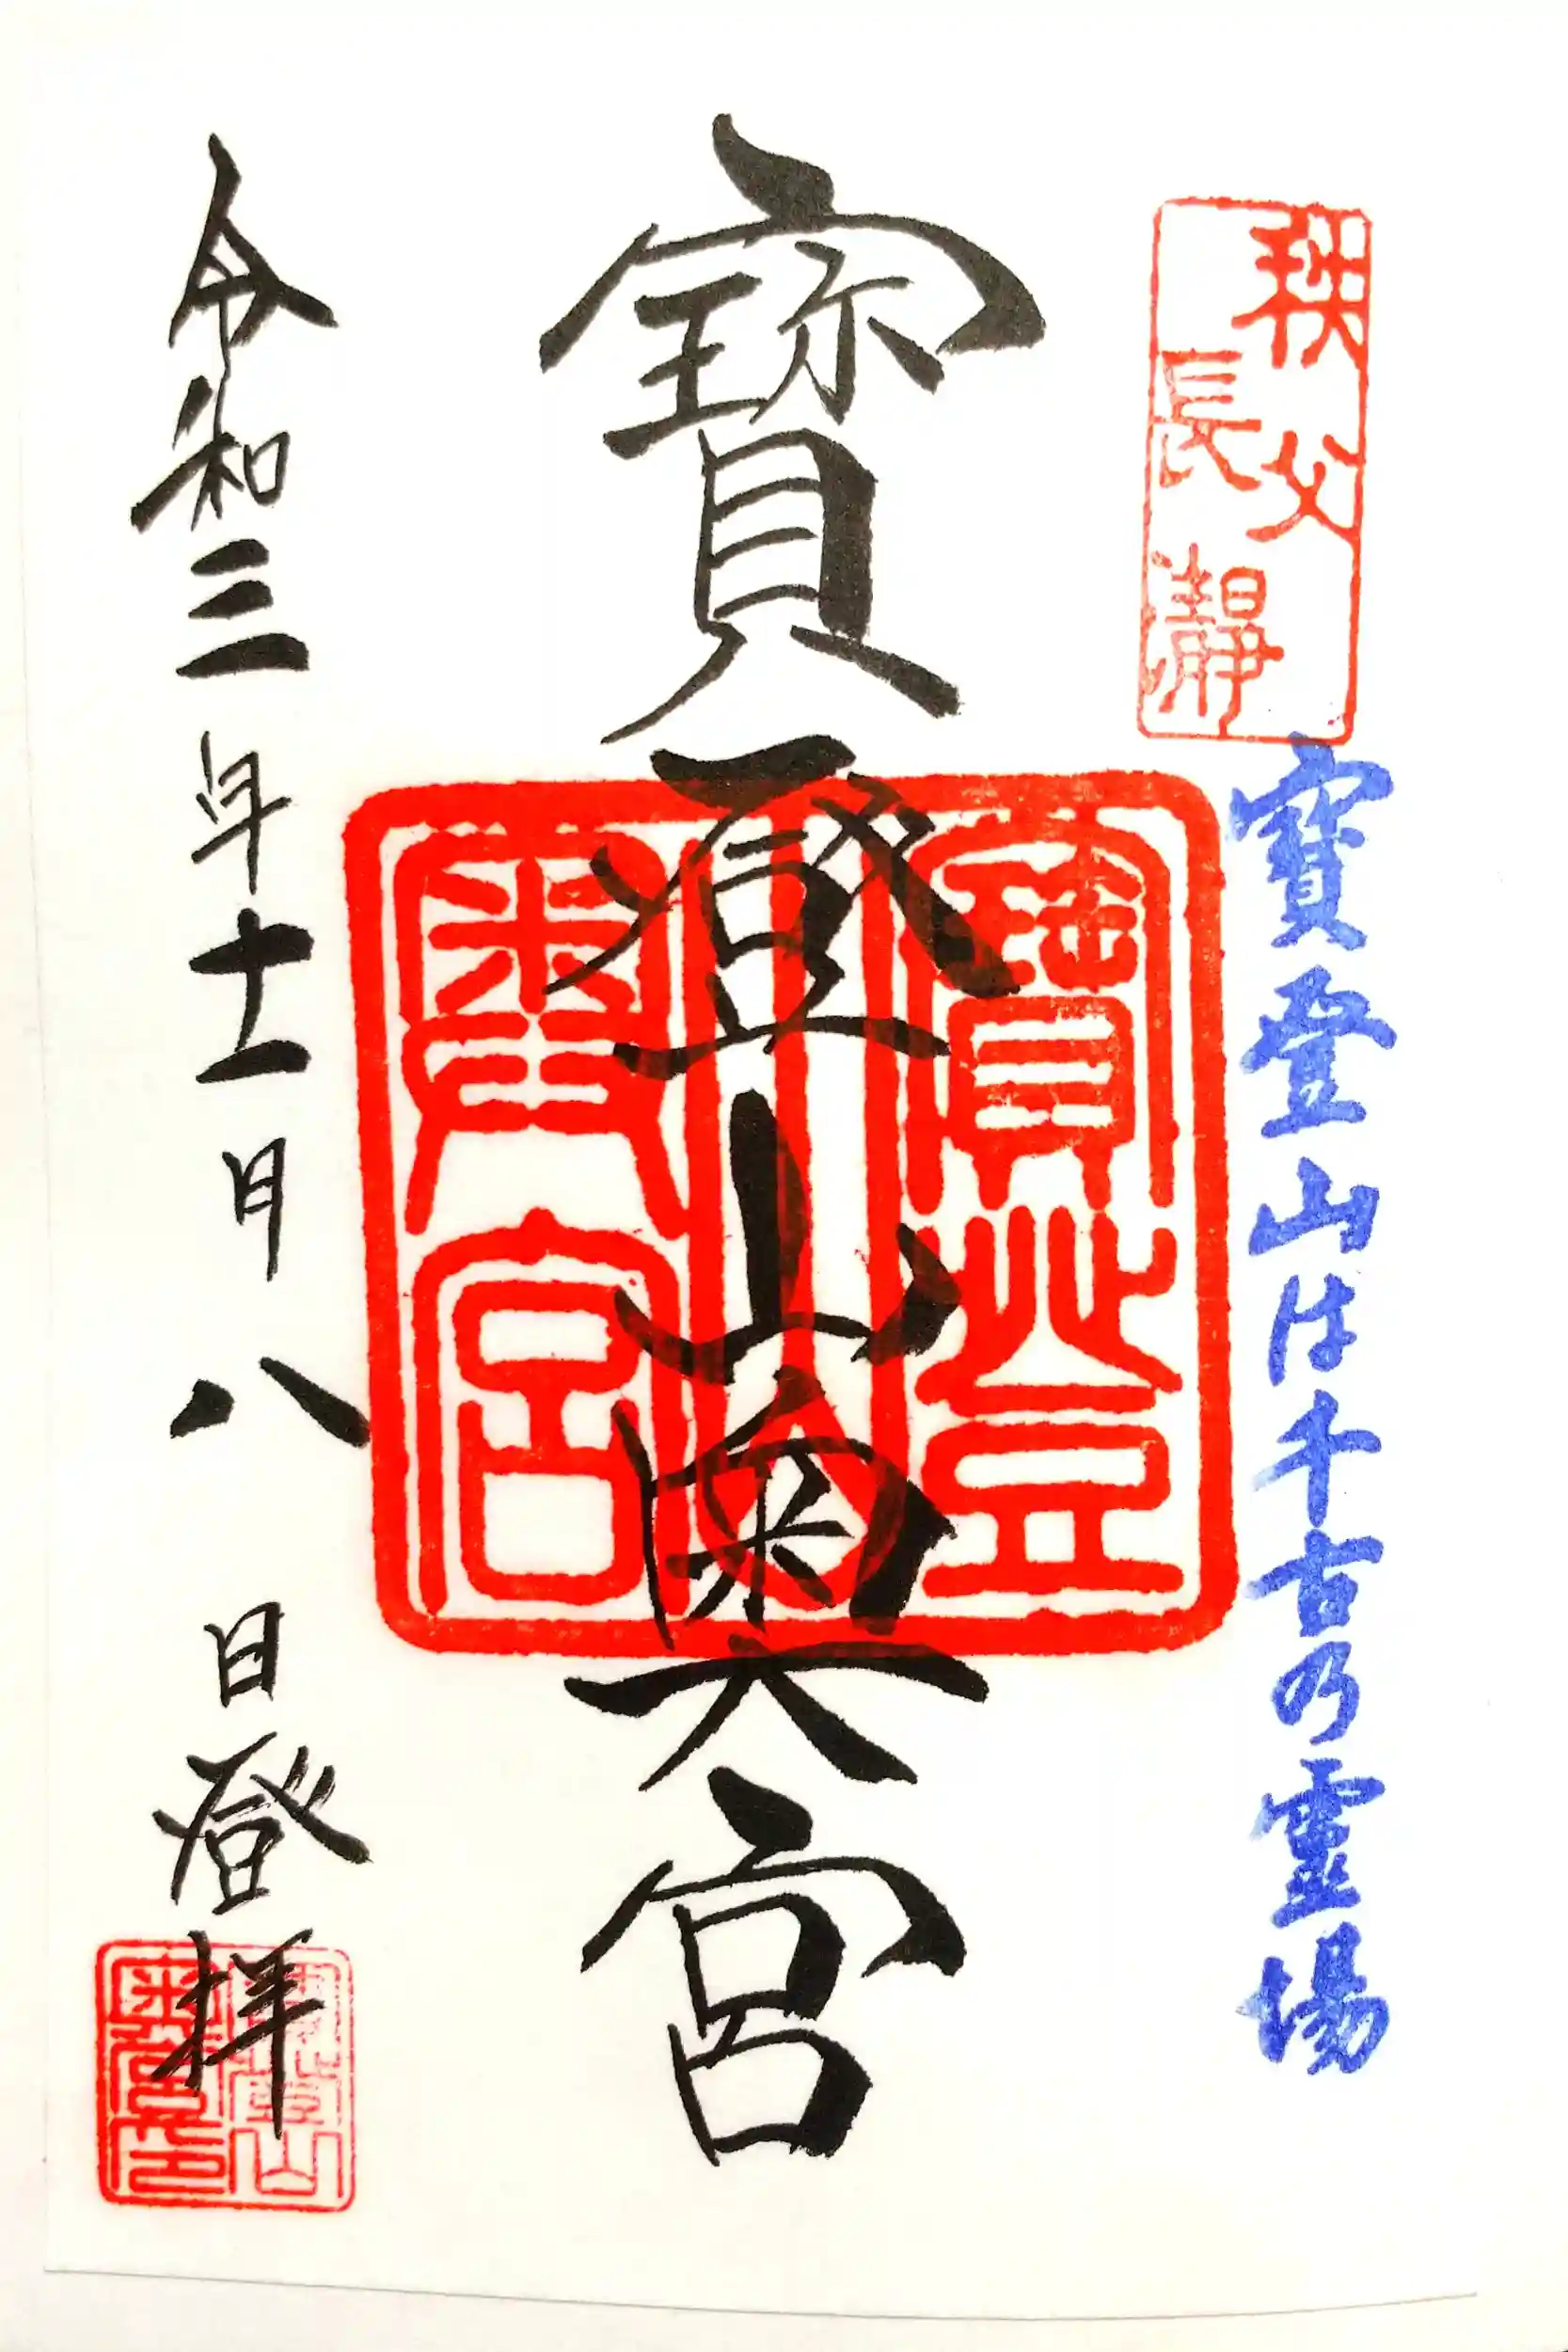 秩父
長瀞
寶登山は千古乃靈場
寶登山奥宮
寶登山奥宮
令和三年十一月八日登拝
寶登山
奥宮之印